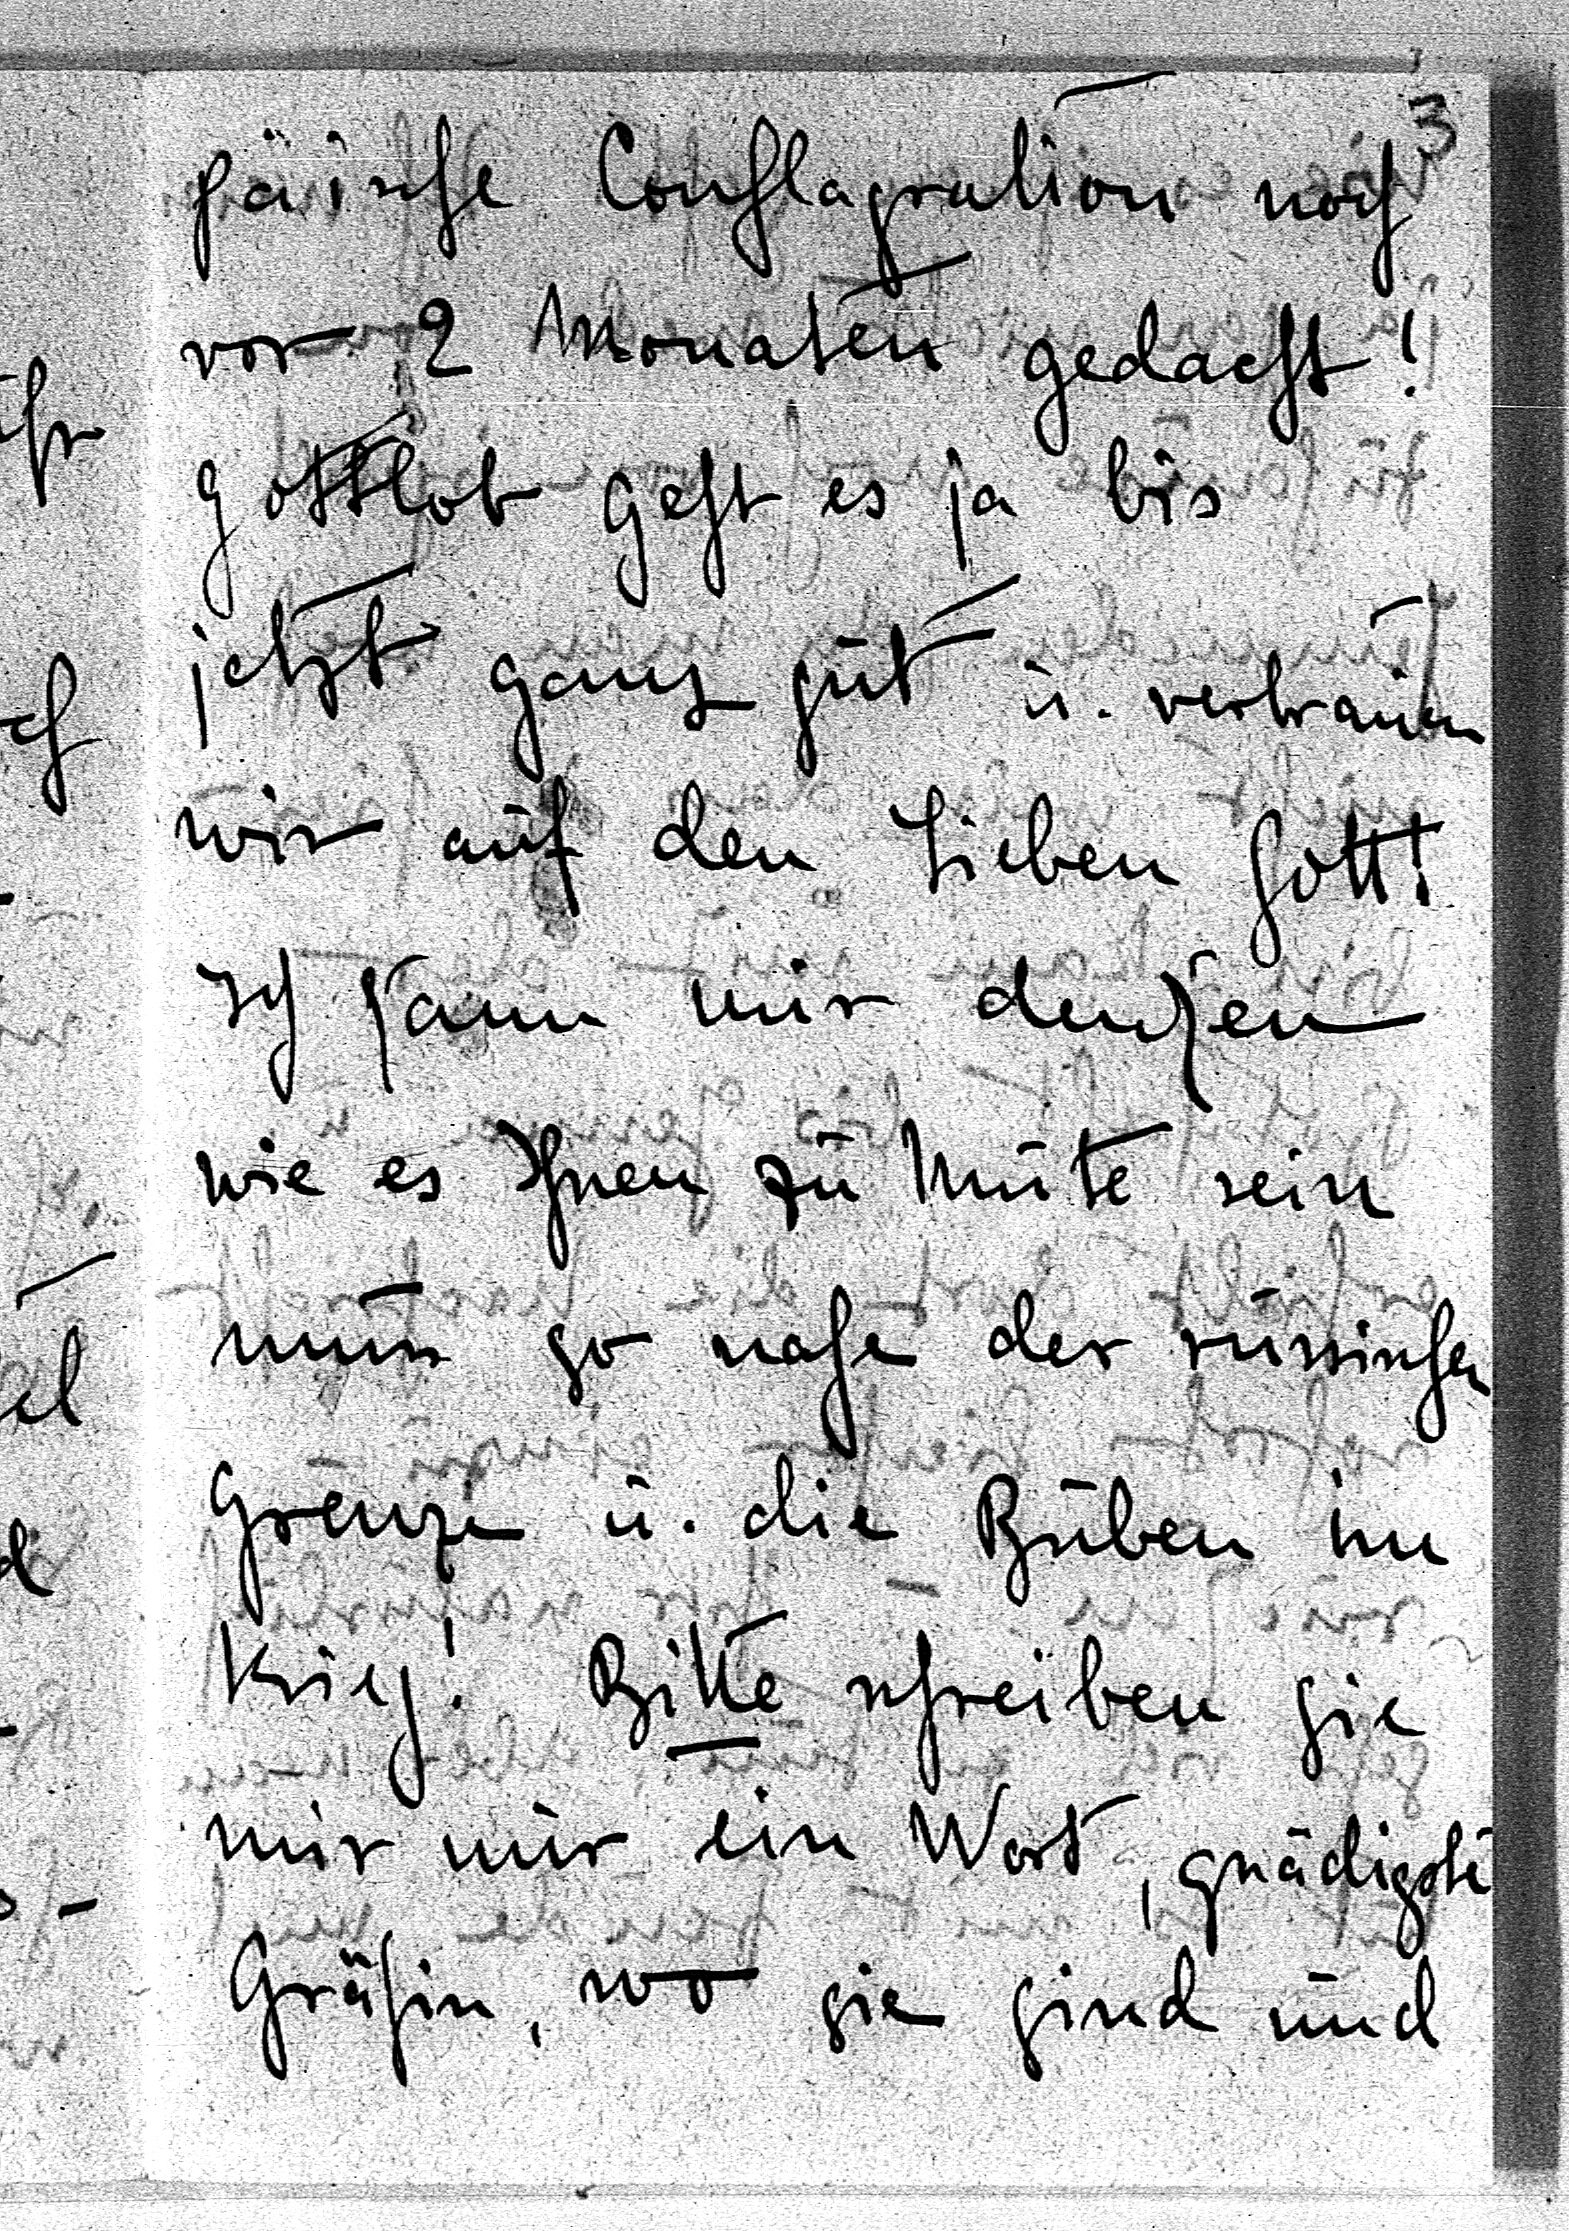 3
päische Conflagration noch
vor 2 Monaten gedacht!
Gottlob geht es ja bis
jetzt ganz gut u. vertrauen
wir auf den Lieben Gott!
Ich kann mir denken
wie es Ihnen zu Mute sein
muss so nahe der russischen
Grenze u. die Buben im
Krieg! Bitte schreiben Sie
mir nur ein Wort, gnädigste
Gräfin, wo sie sind und